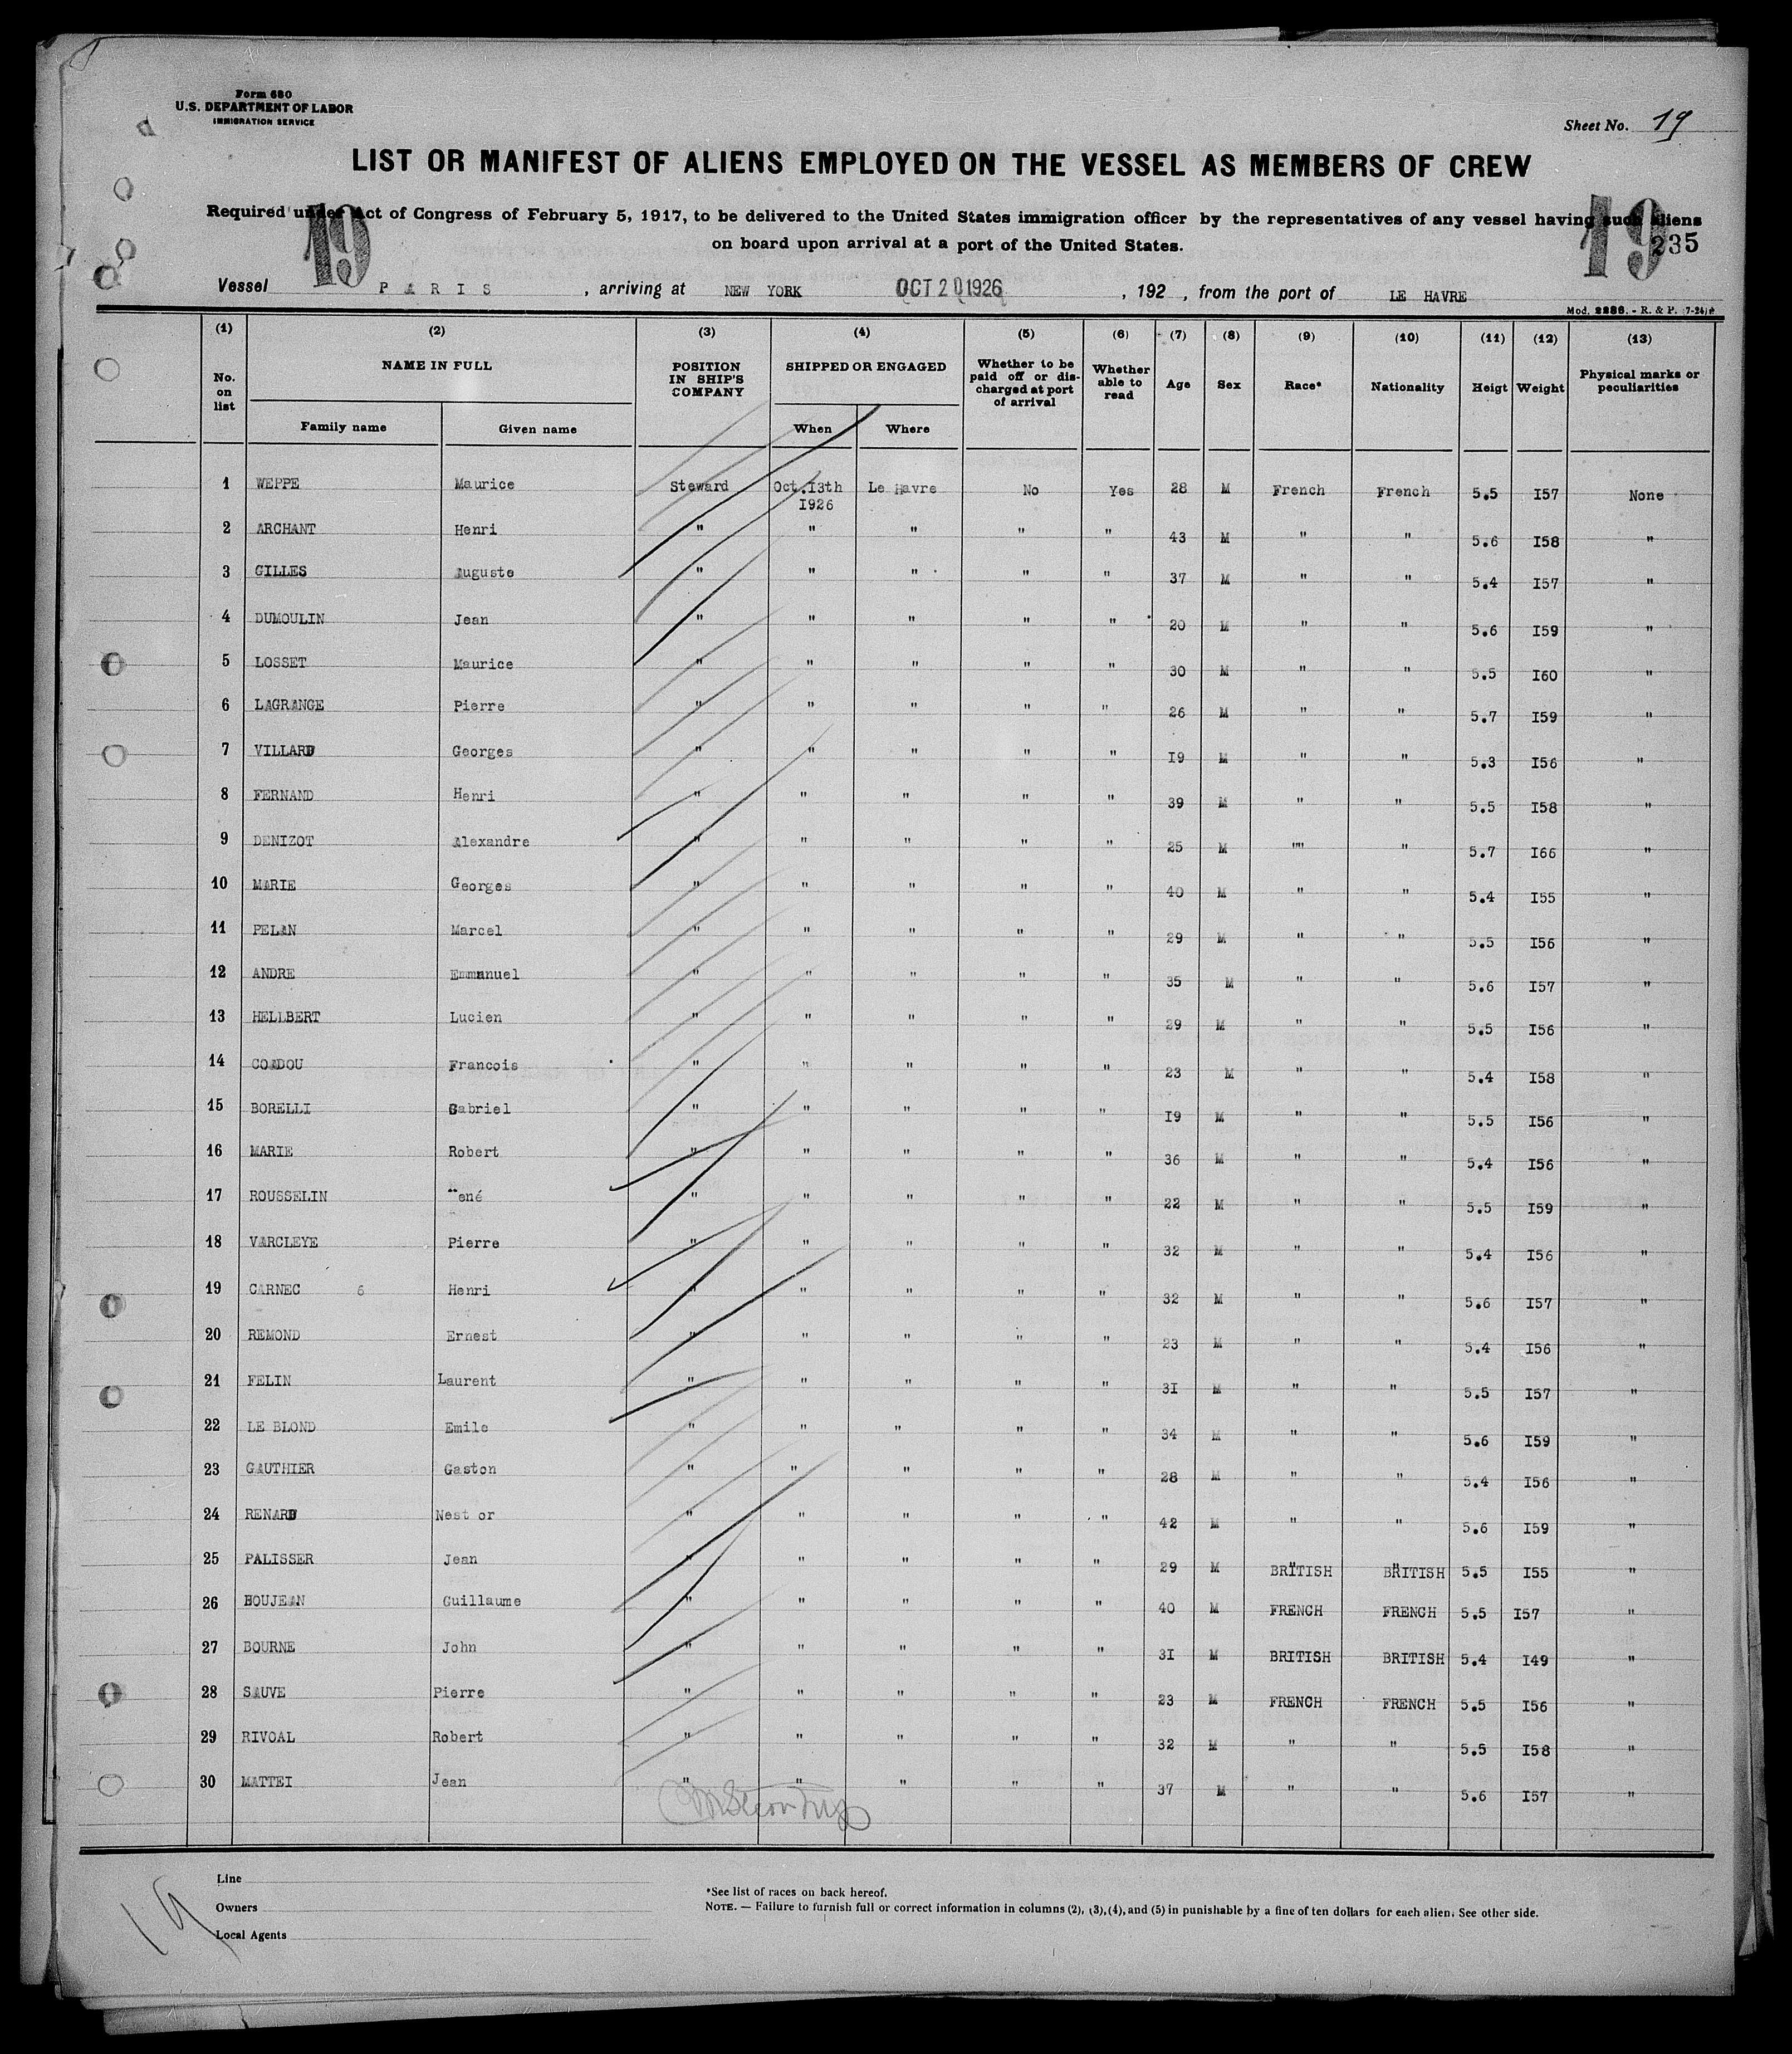 Form 680
U.S. DEPARTMENT OF LABOR
IMMIGRATION SERVICE
Sheet No. 19
LIST OR MANIFEST OF ALIENS EMPLOYED ON THE VESSEL AS MEMBERS OF CREW
Required under Act of Congress of February 5, 1917, to be delivered to the United States immigration officer by the representatives of any vessel having such aliens
on board upon arrival at a port of the United States.
19 19 235
Vessel PARIS , arriving at NEW YORK OCT 20 1926 , 192 , from the port of LE HAVRE
Mod. 2286. - R. & P. (7-24)
(1) (2) (3) (4) (5) (6) (7) (8) (9) (10) (11) (12) (13)
No. on list NAME IN FULL POSITION IN SHIP'S COMPANY SHIPPED OR ENGAGED Whether to be paid off or discharged at port of arrival Whether able to read Age Sex Race* Nationality Heigt Weight Physical marks or peculiarities
Family name Given name When Where
1 WEPPE Maurice Steward Oct.I3th I926 Le Havre No Yes 28 M French French 5.5 I57 None
2 ARCHANT Henri " " " " " 43 M " " 5.6 I58 "
3 GILLES Auguste " " " " " 37 M " " 5.4 I57 "
4 DUMOULIN Jean " " " " " 20 M " " 5.6 I59 "
5 LOSSET Maurice " " " " " 30 M " " 5.5 I60 "
6 LAGRANGE Pierre " " " " " 26 M " " 5.7 I59 "
7 VILLARD Georges " " " " " I9 M " " 5.3 I56 "
8 FERNAND Henri " " " " " 39 M " " 5.5 I58 "
9 DENIZOT Alexandre " " " " " 25 M "" " 5.7 I66 "
10 MARIE Georges " " " " " 40 M " " 5.4 I55 "
11 PELAN Marcel " " " " " 29 M " " 5.5 I56 "
12 ANDRE Emmanuel " " " " " 35 M " " 5.6 I57 "
13 HELLBERT Lucien " " " " " 29 M " " 5.5 I56 "
14 COADOU Francois " " " " " 23 M " " 5.4 I58 "
15 BORELLI Gabriel " " " " " I9 M " " 5.5 I56 "
16 MARIE Robert " " " " " 36 M " " 5.4 I56 "
17 ROUSSELIN "ené " " " " " 22 M " " 5.5 I59 "
18 VARCLEYE Pierre " " " " " 32 M " " 5.4 I56 "
19 CARNEC 6 Henri " " " " " 32 M " " 5.6 I57 "
20 REMOND Ernest " " " " " 23 M " " 5.4 I56 "
21 FELIN Laurent " " " " " 3I M " " 5.5 I57 "
22 LE BLOND Emile " " " " " 34 M " " 5.6 I59 "
23 GAUTHIER Gaston " " " " " 28 M " " 5.4 I56 "
24 RENARD Nest or " " " " " 42 M " " 5.6 I59 "
25 PALISSER Jean " " " " " 29 M BRITISH BRITISH 5.5 I55 "
26 BOUJEAN Guillaume " " " " " 40 M FRENCH FRENCH 5.5 I57 "
27 BOURNE John " " " " " 3I M BRITISH BRITISH 5.4 I49 "
28 SAUVE Pierre " " " " " 23 M FRENCH FRENCH 5.5 I56 "
29 RIVOAL Robert " " " " " 32 M " " 5.5 I58 "
30 MATTEI Jean " " " " " 37 M " " 5.6 I57 "
Line
Owners
Local Agents
*See list of races on back hereof.
NOTE. — Failure to furnish full or correct information in columns (2), (3), (4), and (5) in punishable by a fine of ten dollars for each alien. See other side.
19